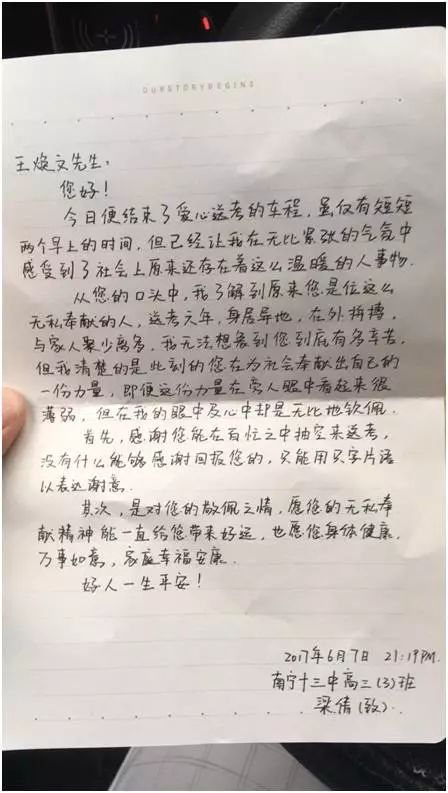 OURSTORYBEGINS
王焕文先生:
您好!
今日便结束了爱心送考的车程,虽仅有短短
两个早上的时间,但已经让我在无比紧张的气氛中
感受到了社会上原来还存在着这么温暖的人事物.
从您的口头中,我了解到原来您是位这么
无私奉献的人,送考六年,身居异地,在外拼搏,
与家人聚少离多,我无法想象到您到底有多辛苦,
但我清楚的是此刻的您在为社会奉献出自己的
一份力量,即便这份力量在旁人眼中看起来很
薄弱,但在我的眼中及心中却是无比地钦佩.
首先,感谢您能在百忙之中抽空来送考,
没有什么能够感谢回报您的,只能用只字片语
以表达谢意.
其次,是对您的敬佩之情,愿您的无私奉
献精神能一直给您带来好运,也愿您身体健康,
万事如意,家庭幸福安康.
好人一生平安!
2017年6月7日 21:19PM.
南宁十三中高三(3)班
梁倩(致).